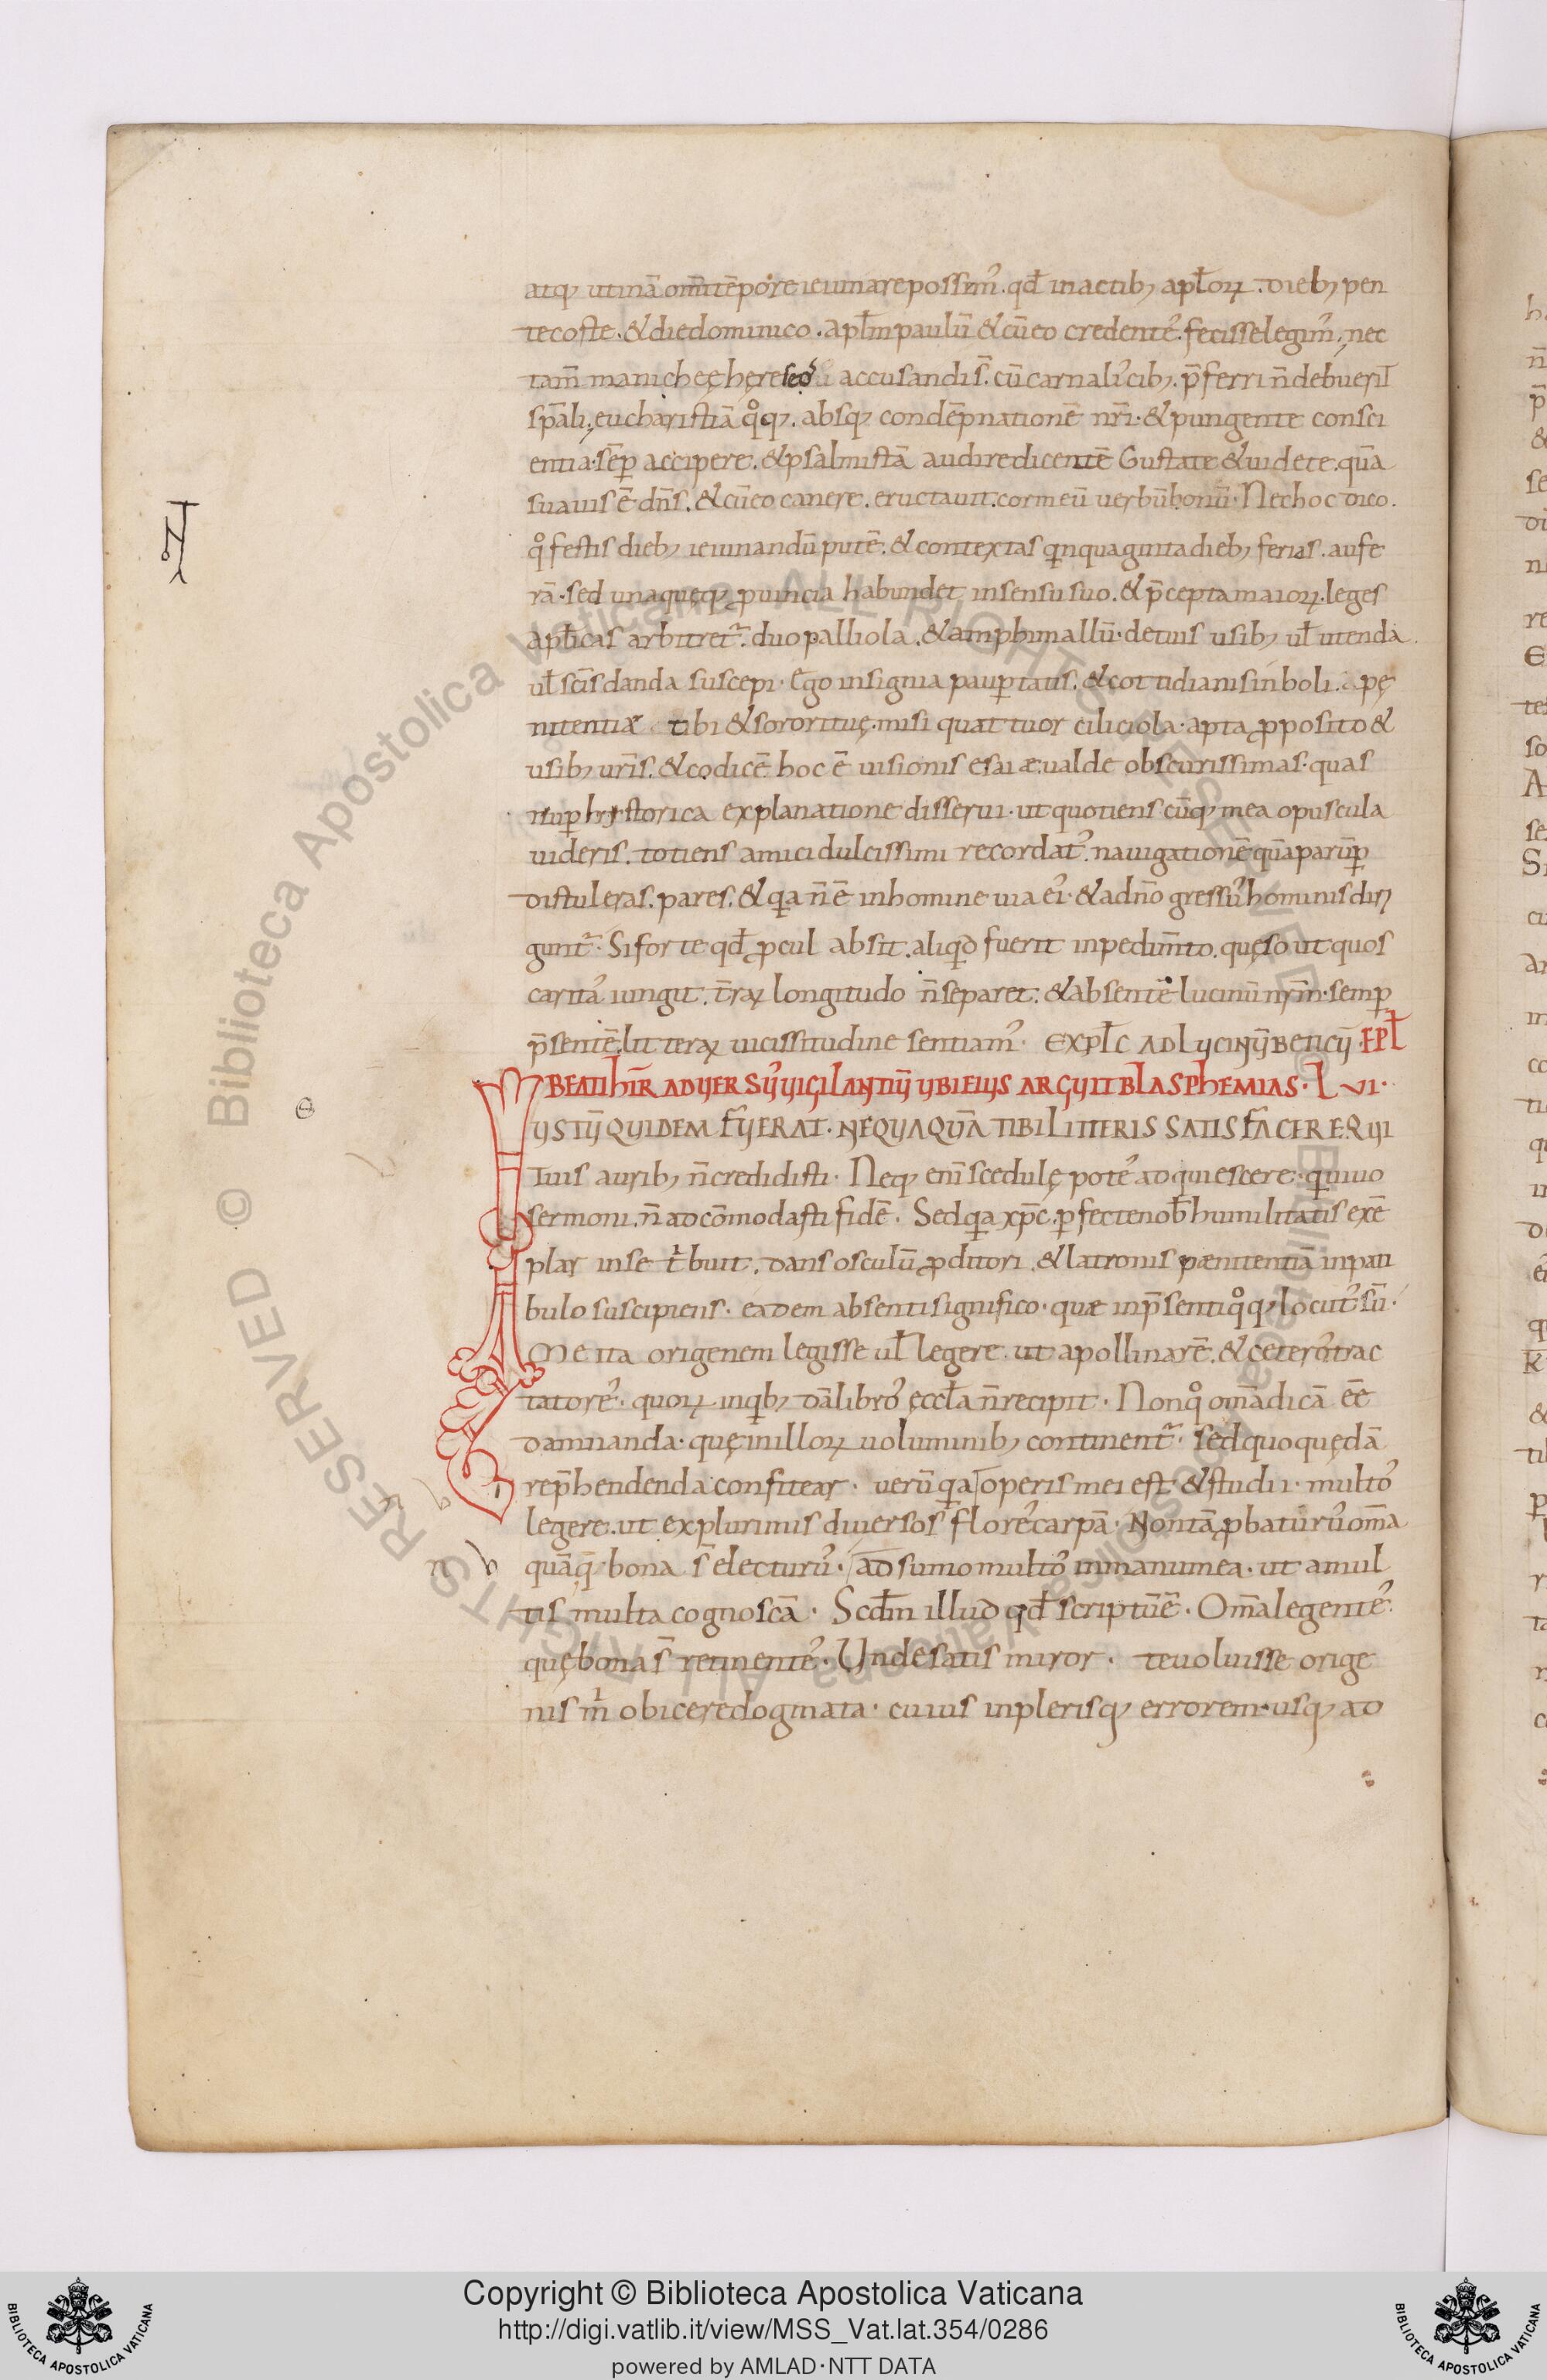 atq; utinā om̄i tēpore ieiunare possim᾽. qđ in actib; apl̄oꝝ. dieb; pen
tecoste. & die dominico. apl̄m paulū & cū eo credente᾽. fecisse legim᾽. nec
tam̄ manicheę hęreseos accusandi s̄. cū carnali᾽ cib; p̄ferri n̄ debuerit
sp̄ali. eucharistiā qͦq;. absq; condēpnationē nr̄i. & pungente consci
entia. sēp accipere. & psalmistā audire dicentē Gustate & uidete. quā
suauis ē dn̄s. & cū eo canere. eructauit. cor meū uerbū bonū. Nec hoc dico.
qͦ festis dieb; ieiunandū putē. & contextas qinquaginta dieb; ferias. aufe
rā. sed unaquęq; ꝓuincia habundet in sensu suo. & p̄cepta maioꝝ. leges
apl̄icas arbitret᷑. duo palliola. & amphimallū. de tuis usib; ul̄ utenda.
ul̄ sc̄is danda suscepi. Ego insignia pauꝑtatis. & cottidiani sinboli. pę
nitentiæ tibi & sorori tuę. misi quattuor ciliciola. apta ꝓposito &
usib; ur̄is. & codicē hoc ē uisionis esaiæ. ualde obscurissimas. quas
nuꝑ hystorica explanatione disserui. ut quotienscūq; mea opuscula
uideris. totiens amici dulcissimi recordat᾽. nauigationē quā parūꝑ
distuleras. pares. & qia n̄ ē in homine uia ei᾽. & a dn̄o gressu᾽ hominis diri
gunt᷑. Si forte qđ ꝓcul absit. aliqid fuerit inpedim̄to. quęso ut quos
carita᾽ iungit. t̄raꝝ longitudo n̄ separet. & absentē lucinū nr̄m. semꝑ
p̄sentē. litteraꝝ uicissitudine sentiam᾽. EXPL̄C AD LYCINŪ BETICŪ. EPL̄
BEATI HIR̄ ADUERSU᾽ UIGILANTIŪ UBI EIUS ARGUIT BLASPHEMIAS. LVI.
IUSTŪ QUIDEM FUERAT. NEQUAQUĀ TIBI LITTERIS SATISFACERE. QUI
tuis aurib; n̄ credidisti. Neq; enī scedulę pote᾽ adquiescere. qi uiuo
sermoni. n̄ adcōmodasti fidē. Sed qia xp̄c. perfecte nob̄ humilitatis exē
plar in se tⁱbuit. dans osculū ꝓditori. & latronis pænitentiā in pati
bulo suscipiens. eadem absenti significo. quæ in p̄senti qͦq; locut᾽ sū.
Me ita origenem legisse ul̄ legere. ut apollinarē. & cetero᾽ trac
tatore᾽. quoꝝ in qⁱb; dā libro᾽ ęccl̄a n̄ recipit. Non qͦ om̄a dicā ēē
damnanda. quę in illoꝝ uoluminib; continent᷑. sed quo quędā
rep̄hendenda confitear. uerū qia operis mei est & studii. multo᾽
legere. ut ex plurimis diuersos flore᾽ carpā. Non tā ꝓbaturu᾽ om̄a
quā q̄ bona s̄ electuru᾽. adsumo multo᾽ in manu mea. ut a mul
tis multa cognoscā. Scd̄m illud qđ scriptū ē. Om̄a legente᾽.
quę bona s̄ retinente᾽. Unde satis miror. te uoluisse orige
nis mⁱ obicere dogmata. cuius in plerisq; errorem. usq; ad
Copyright © Biblioteca Apostolica Vaticana
http://digi.vatlib.it/view/MSS_Vat.lat.354/0286
powered by AMLAD·NTT DATA